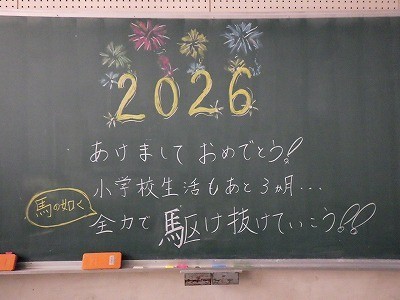 2026
あけまして おめでとう!
小学校生活もあと3ヵ月...
馬の如く
全力で駆け抜けていこう!!